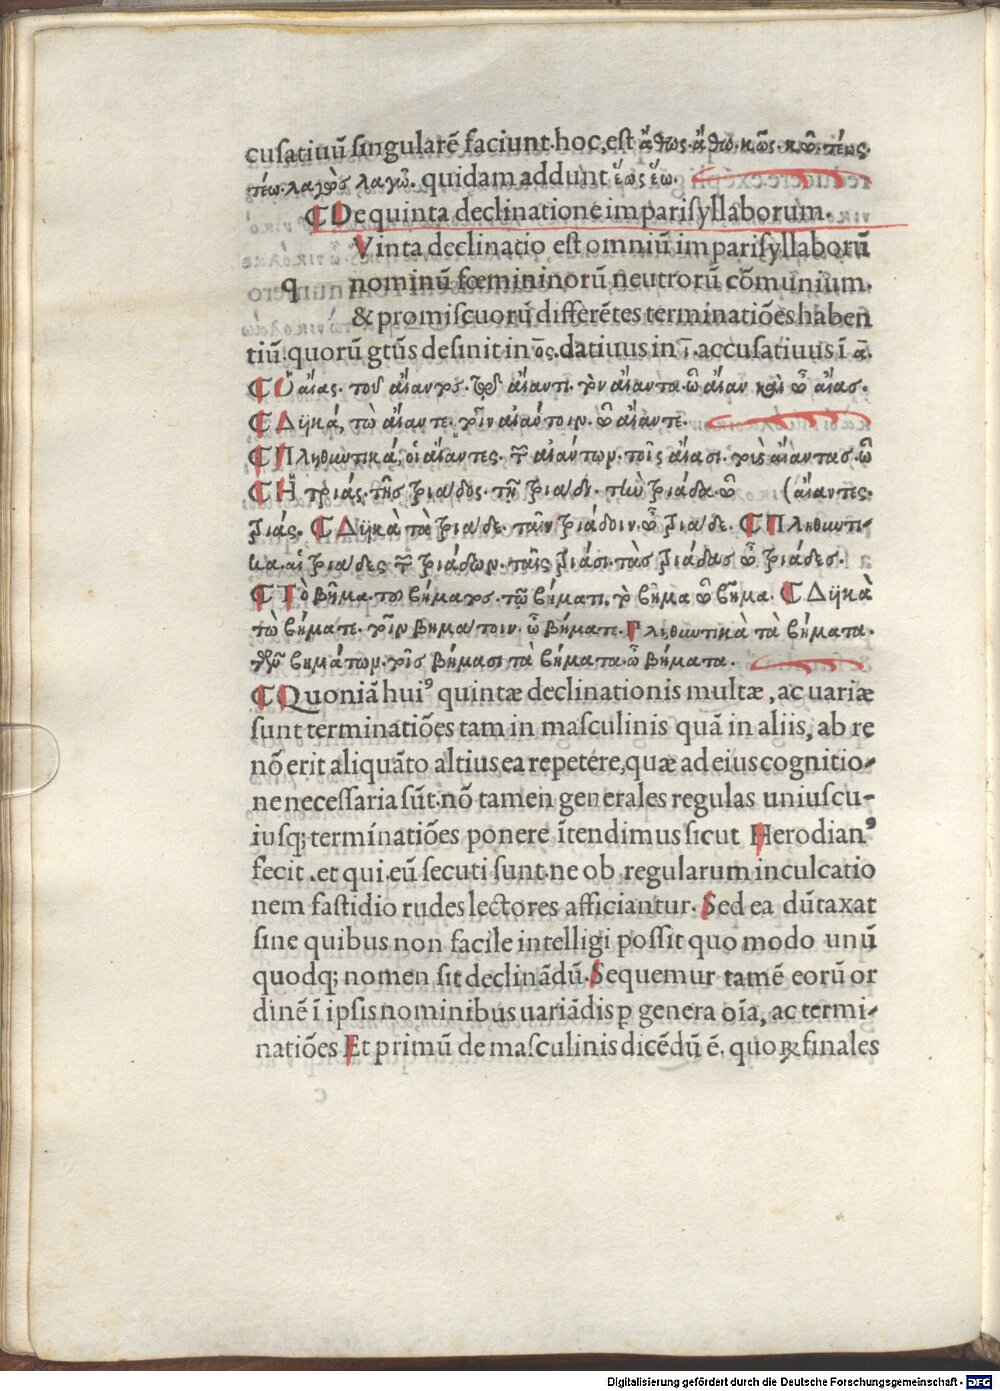 cusatiuū singularē faciunt.hoc,est ἄθως.ἄθω.κῶς.κῶ.τέως.
τέω.λαγὼς λαγῶ. quidam addunt ἕως ἕω.
¶De quinta declinatione imparisyllaborum.
Vinta declinatio est omniū imparisyllaborū
q nominū fœmininorū neutrorū cōmunium.
& promiscuorū differētes terminatiōes haben
tiū.quorū gtūs desinit in ο̄ς.datiuus in ῑ.accusatiuus ī ᾱ.
¶Ὁ αἴας. τοῦ αἴαντος. τῷ αἴαντι. τὸν αἴαντα ὦ αἶαν καὶ ὦ αἴας.
¶Δϋικά, τὼ αἴαντε. τοῖν αἰάντοιν. ὦ αἴαντε.
¶Πληθυντικά, οἱ αἴαντες. τῶν αἰάντων. τοῖς αἴασι. τοὺς αἴαντας. ὦ
¶Ἡ τριάς. τῆς τριάδος. τῇ τριάδι. τὴν τριάδα. ὦ (αἴαντες.
τριάς. ¶Δϋικὰ τὰ τριάδε. ταῖν τριάδοιν. ὦ τριάδε. ¶Πληθυντι-
κα. αἱ τριάδες τῶν τριάδων. ταῖς τριάσι. τὰς τριάδας ὦ τριάδες.
¶Τὸ βῆμα. τοῦ βήματος. τῷ βήματι. τὸ βῆμα ὦ βῆμα. ¶Δϋικὰ
τὼ βήματε. τοῖν βημάτοιν. ὦ βήματε. Πληθυντικὰ τὰ βήματα.
τῶν βημάτων. τοῖς βήμασι τὰ βήματα. ὦ βήματα.
¶Quoniā huiꝰ quintæ declinationis multæ, ac uariæ
sunt terminatiōes tam in masculinis quā in aliis, ab re
nō erit aliquāto altius ea repetere,quæ ad eius cognitio-
ne necessaria sūt.nō tamen generales regulas uniuscu-
iusq; terminatiōes ponere ītendimus sicut Herodianꝰ
fecit .et qui eū secuti sunt.ne ob regularum inculcatio
nem fastidio rudes lectores afficiantur. Sed ea dūtaxat
sine quibus non facile intelligi possit quo modo unū
quodq; nomen sit declinādū.Sequemur tamē eorū or
dinē ī ipsis nominibus uariādis ꝑ genera oīa, ac termi-
natiōes Et primū de masculinis dicēdū ē. quoꝝ finales